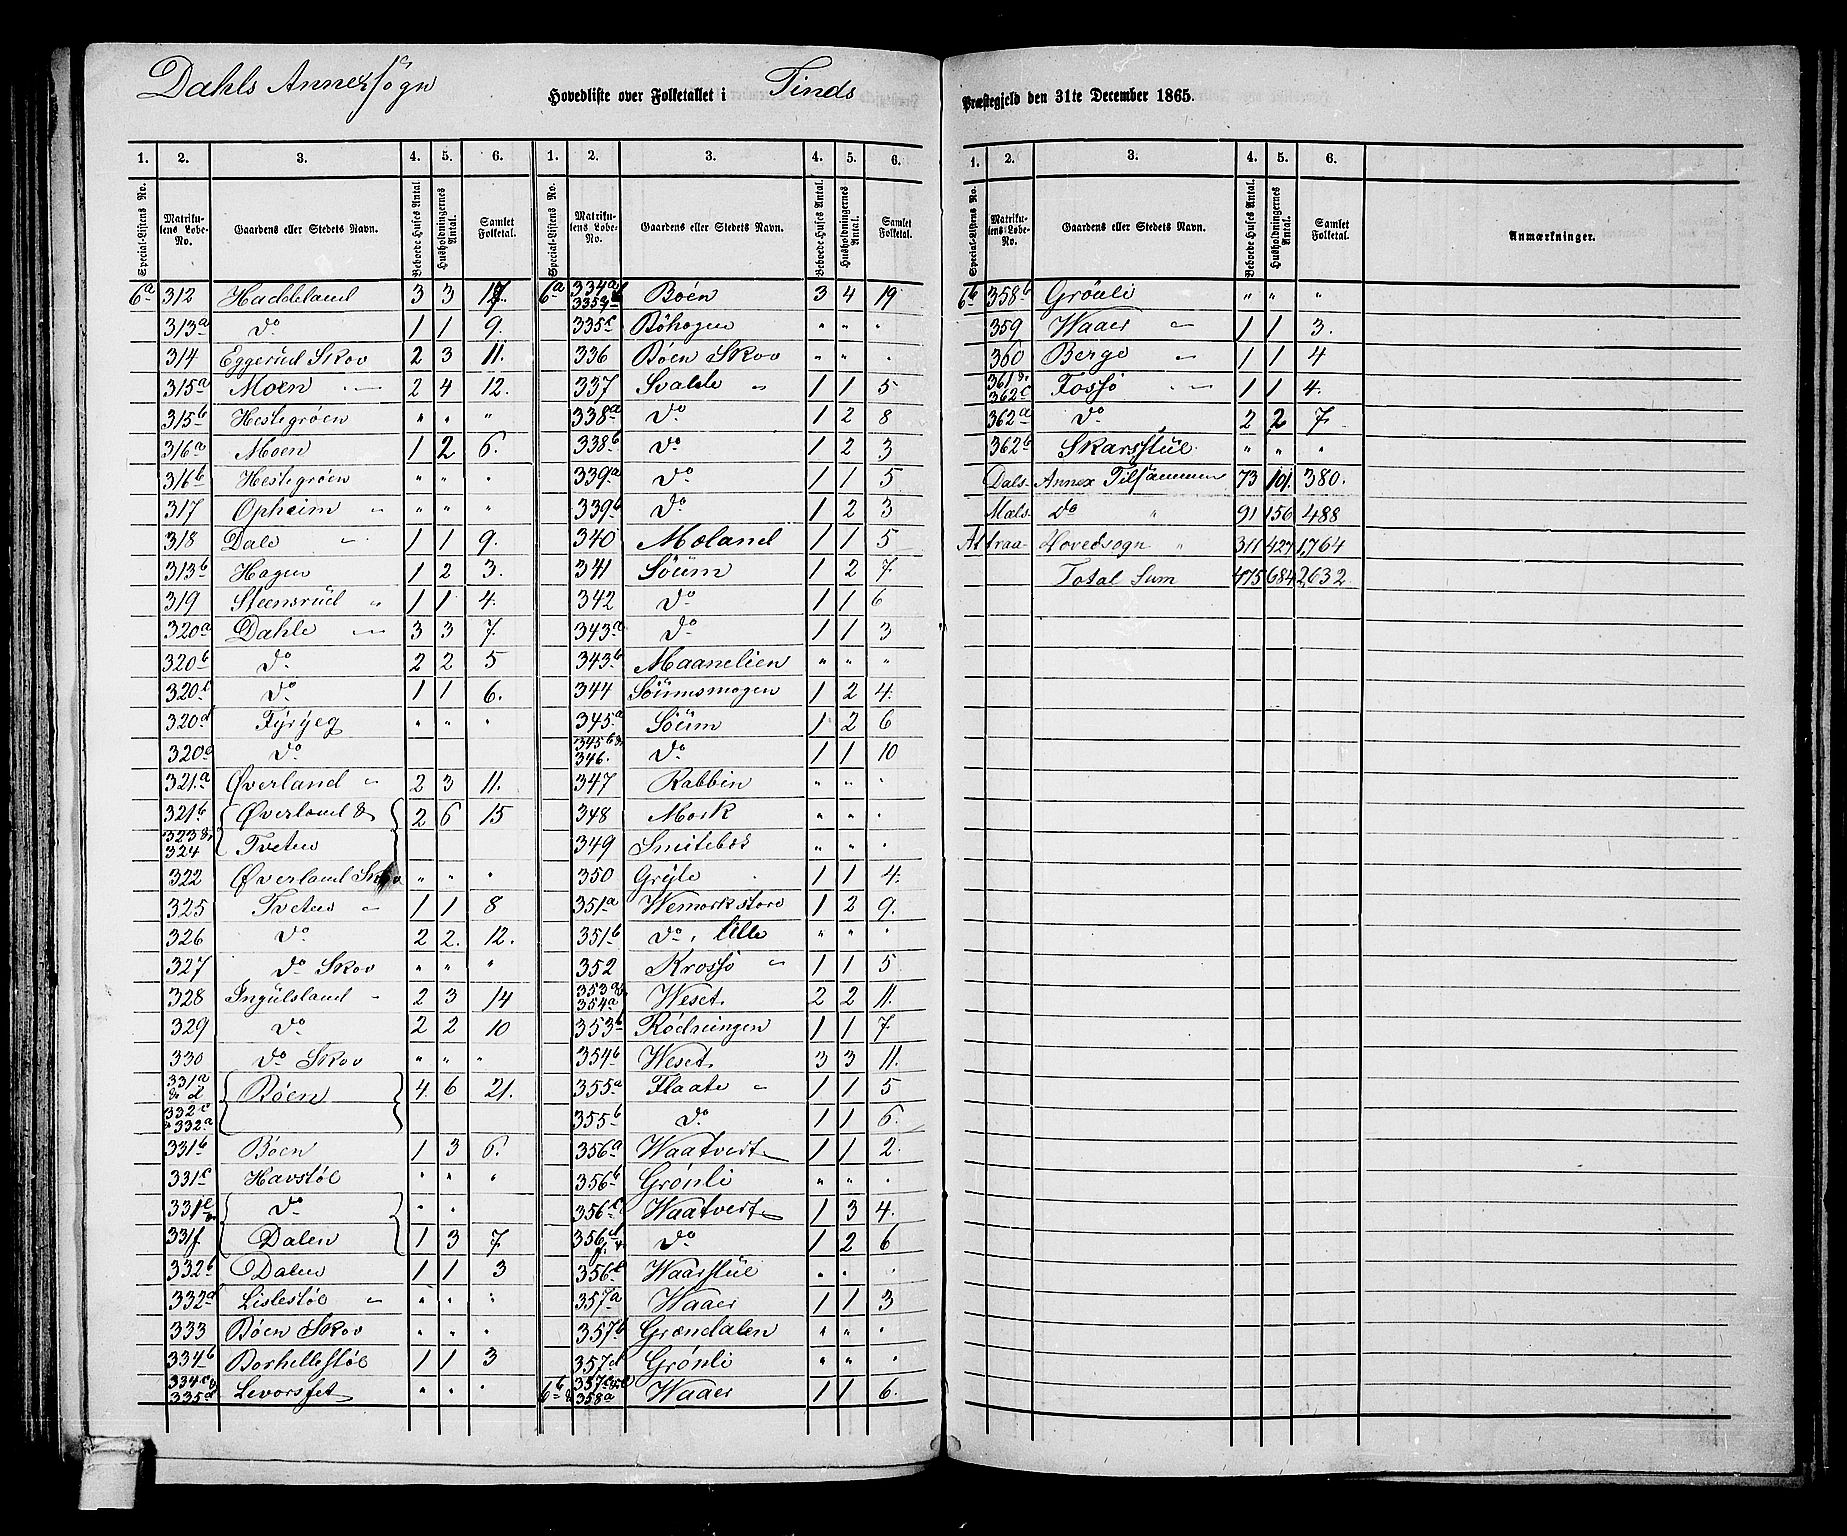 Dahls Annexsogn
Hovedliste over Folketallet i Tinds Præstegjeld den 31te December 1865.
1. 2. 3. 4. 5. 6. 1. 2. 3. 4. 5. 6.
Special-Listens No. Matrikulens Løbe-No. Gaardens eller Stedets Navn. Beboede Huses Antal. Husholdningernes Antal. Samlet Folketal. Special-Listens No. Matrikulens Løbe-No. Gaardens eller Stedets Navn. Beboede Huses Antal. Husholdningernes Antal. Samlet Folketal.
6a 312 Haddeland 3 3 17
313a Do 1 1 9.
314 Eggerud Skov 2 3 11.
315a Moen " 2 4 12.
315b Hestegrøen " " "
316a Moen 1 2 6.
316b Hestegrøen " " "
317 Opheim " " " "
318 Dale " 1 1 9.
313b Hagen 1 2 3.
319 Steensrud " 1 1 4.
320a Dahle " 3 3 7.
320b Do 2 2 5
320c Do 1 1 6.
320d Fyryeg " " "
320e Do
321a Øverland " 2 3 11.
321b Øverland & 2 6 15
323 & 324 Tveten
322 Øverland Skov " " "
325 Tveten " 1 1 8
326 Do 2 2. 12.
327 Do Skov " " "
328 Ingulsland " 2 3 14
329 Do 2 2 10
330 Do Skov " " "
331a & d Bøen 4. 6 21.
332c & 332a
331b Bøen 1 3 6.
331c Havstøl " " "
331e Do " "
331f Dalen 1 3 7.
332b Dalen 1 1 3
332d Lislestøl " " " "
333 Bøen Skov " " "
334b Borhellestøl 1 1 3
334c 335d Levorsfet " " "
6a 334a 335b Bøen 3 4 19
335c Bøhagen " " "
336 Bøen Skov " " "
337 Svadde " 1 1 5
338a Do 1 2 8
338b Do 1 2 3
339a Do 1 1 5
339b Do 1 2 3
340 Moland 1 1 5
341 Søum 1 2 7.
342 Do 1 1 6
343a Do 1 1 3
343b Maanelien " " "
344 Søumsmogen 1 2 4.
345a Søum 1 2 6
345b & 346. Do 1 1 10
347 Rabbin " " "
348 Mork " " "
349 Smitebøs " " "
350 Gryte 1 1 4.
351a Wemork store 1 2 9.
351b Do, lille " " "
352 Krossø " 1 1 5
353a & 354a Weset 2 2 11.
353b Rødningen 1 1 7.
354b Weset 3 3 11.
355a Flaate " 1 1 5
355b Do 1 1 6.
356a Waatveit 1 1 2.
356b Grønli " " "
356c Waatveit 1 3 4.
356d f. Do 1 2 6
356e Waarstul " " "
357a Waaer 1 1 3
357b Grøndalen " " "
357d Grønli " " "
6b 357c 358a Waaer 1 1 6.
1. 2. 3. 4. 5. 6.
Special-Listens No. Matrikulens Løbe-No. Gaardens eller Stedets Navn. Beboede Huses Antal. Husholdningernes Antal. Samlet Folketal. Anmærkninger.
6b 358b Grønli " " "
359 Waaer " 1 1 3.
360 Berge " 1 1 4
361 & 362c Fossø " 1 1 4.
362a Do 2 2 7.
362b Skarsstul " " "
Dals Annex Tilsammen 73 101. 380.
Mæls Do " 91 156 488
Attraa Hovedsogn " 311 427 1,764
Total Sum 475 684 2,632